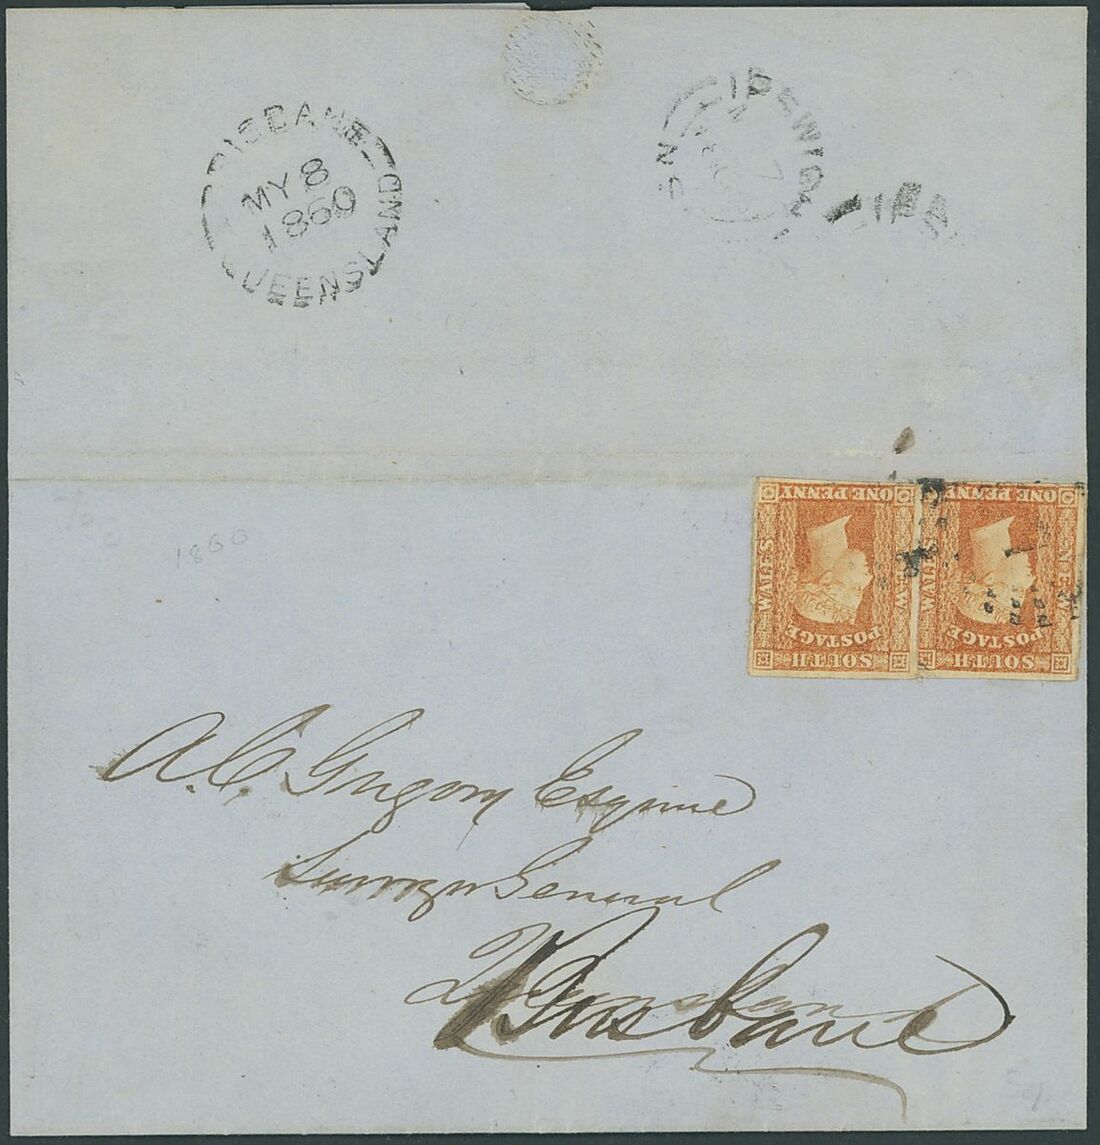 BRISBANE
MY 8
1860
QUEENSLAND
IPSWICH
7
IPS
1860
ONE PENNY
WALES
NEW
POSTAGE
SOUTH
ONE PENNY
WALES
NEW
POSTAGE
SOUTH
A. C. Gregory Esquire
Surveyor General
Brisbane